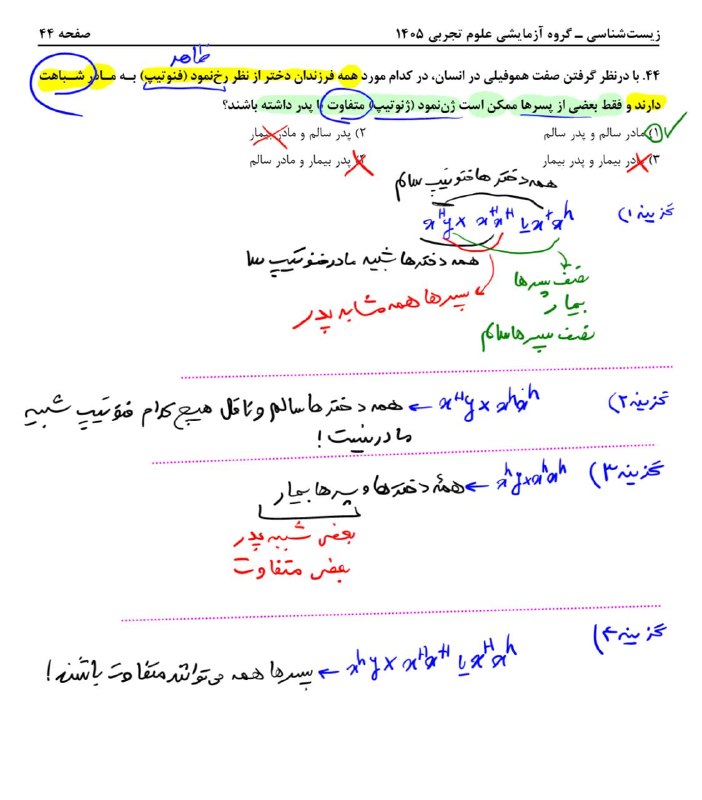 زیست‌شناسی ــ گروه آزمایشی علوم تجربی ۱۴۰۵
صفحه ۴۴
ظاهر
۴۴. با درنظر گرفتن صفت هموفیلی در انسان، در کدام مورد همه فرزندان دختر از نظر رخ‌نمود (فنوتیپ) به مادر شباهت
دارند و فقط بعضی از پسرها ممکن است ژن‌نمود (ژنوتیپ) متفاوت با پدر داشته باشند؟
۱) مادر سالم و پدر سالم
۲) پدر سالم و مادر بیمار
۳) مادر بیمار و پدر بیمار
۴) پدر بیمار و مادر سالم
همه دخترها فنوتیپ سالم
گزینه ۱)
xᴴy × xᴴxᴴ یا xᴴxʰ
همه دخترها شبیه مادر فنوتیپ
نصف پسرها
بیمار
نصف پسرها سالم
پسرها همه مشابه پدر
گزینه ۲)
xᴴy × xʰxʰ ← همه دخترها سالم و ناقل هیچ کدام فنوتیپ شبیه
مادر نیست!
گزینه ۳)
xʰy × xʰxʰ ← همهٔ دخترها و پسرها بیمار
بعض شبیه پدر
بعض متفاوت
گزینه ۴)
xʰy × xᴴxᴴ یا xᴴxʰ ← پسرها همه می‌توانند متفاوت باشند!